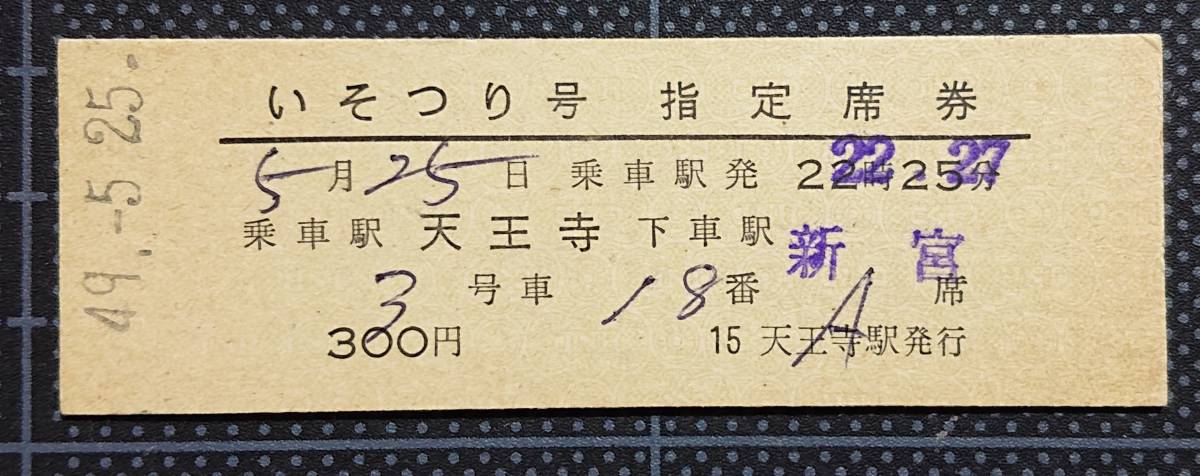 49.-5.25.
いそつり号 指定席券
5月25日 乗車駅発 22時25分
22.27
乗車駅 天王寺 下車駅 新宮
3号車 18番 A席
300円 15 天王寺駅発行